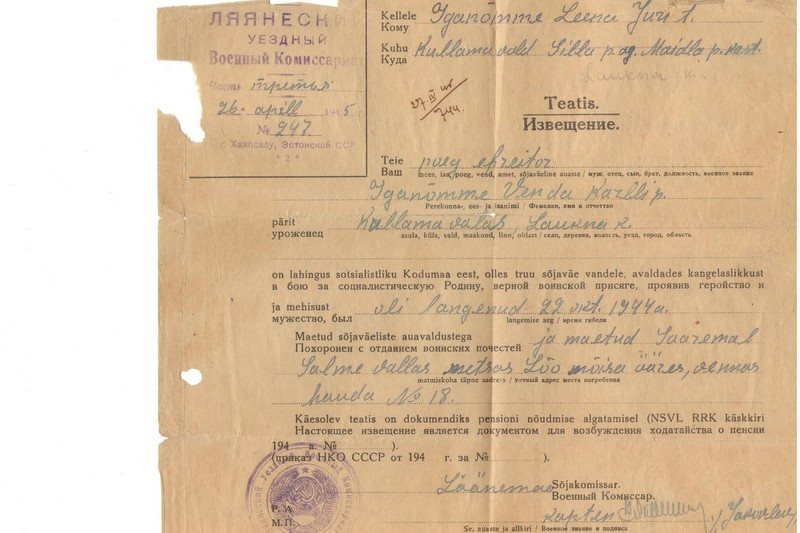 ЛЯЯНЕСКИ
УЕЗДНЫЙ
Военный Комиссариат
Часть третья
26. aprill 1945 г.
№ 247
г. Хаапсалу, Эстонской ССР
"2"
Kellele Iganõmme Leena Juri t.
Кому
Kuhu Kullama vald Silla p. ag. Maidla p. kast.
Куда
Laukna k.
27 IV 45
744.
Teatis.
Извещение.
Teie poeg efreitor
Ваш mees, isa, poeg, vend, amet, sõjaväeline auaste / муж, отец, сын, брат, должность, военное звание
Iganõmme Venda Karlli p.
Perekonna-, ees- ja isanimi / Фамилия, имя и отчество
pärit Kullama valas, Laukna k.
уроженец asula, küla, vald, maakond, linn, oblast / село, деревня, волость, уезд, город, область
on lahingus sotsialistliku Kodumaa eest, olles truu sõjaväe vandele, avaldades kangelaslikkust
в бою за социалистическую Родину, верной воинской присяге, проявив геройство и
ja mehisust oli langenud 22 okt. 1944 a.
мужество, был langemise aeg / время гибели
Maetud sõjaväeliste auavaldustega ja maetud Saaremal
Похоронен с отданием воинских почестей
Salme vallas metsas Lõo mõisa ääres, vennas
matmiskoha täpne aadress / точный адрес места погребения
hauda No 18.
Käesolev teatis on dokumendiks pensioni nõudmise algatamisel (NSVL RRK käskkiri
Настоящее извещение является документом для возбуждения ходатайства о пенсии
194 a. № ).
(приказ НКО СССР от 194 г. за № ).
Läänemaa Sõjakomissar.
Военный Комиссар.
P. A.
М.П.
kapten /Jakovlev/
Sv. auaste ja allkiri / Военное звание и подпись